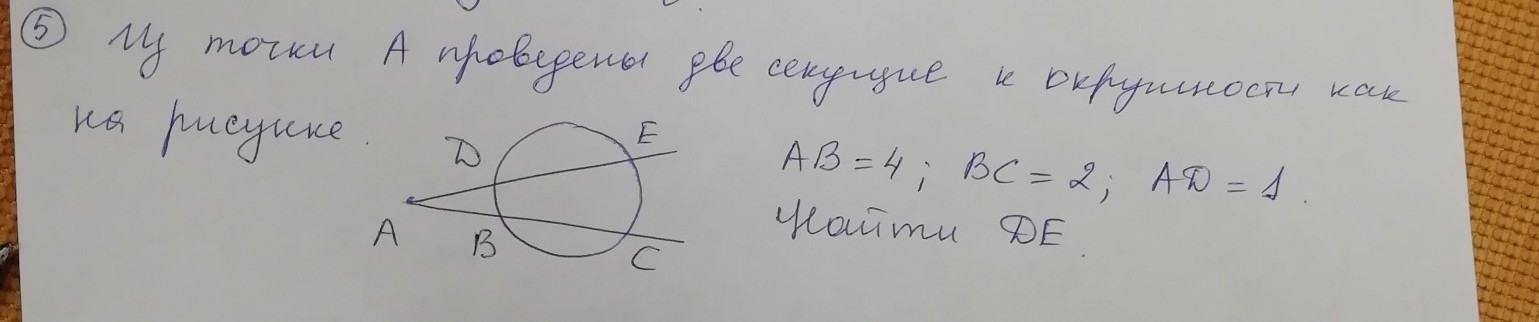 5 Из точки A проведены две секущие к окружности как
на рисунке.
D E
A B C
AB = 4; BC = 2; AD = 1.
Найти DE.